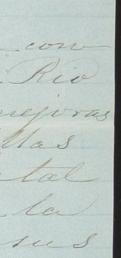 con
Rio
mejoras
llas
tal
la
sus